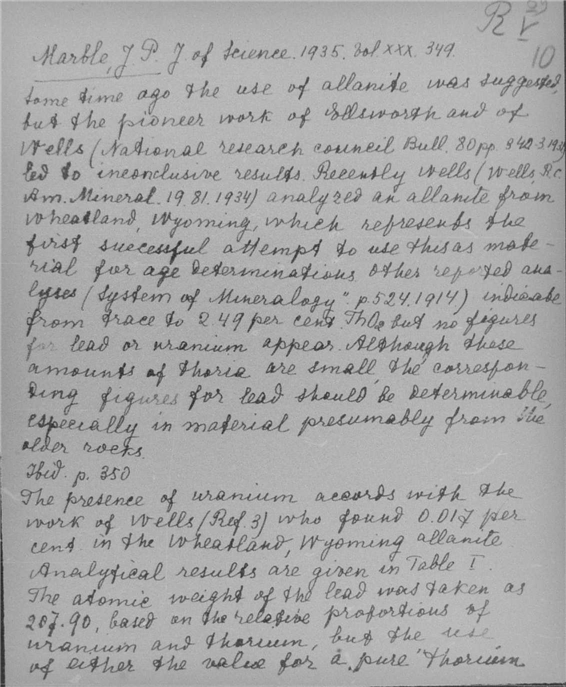 R 29
V
10
Marble, J P. J of Science. 1935. Vol xxx. 349.
Some time ago the use of allanite was suggested,
but the pioneer work of Ellsworth and of
Wells (National research council Bull. 80 pp. 342-3.1931)
led to inconclusive results. Recently Wells (Wells, R.C.
Am. Mineral. 19. 81. 1934) analyzed an allanite from
Wheatland, Wyoming, which represents the
first successful attempt to use this as mate-
rial for age determinations. Other reported ana-
lyses (System of Mineralogy" p.524.1914) indicate
from trace to 2.49 per cent ThO2 but no figures
for lead or uranium appear. Although these
amounts of thoria are small, the correspon-
ding figures for lead should be determinable,
especially in material presumably from the
older rocks.
Ibid. p. 350
The presence of uranium accords with the
work of Wells (Ref. 3) who found 0.017 per
cent. in the Wheatland, Wyoming allanite
Analytical results are given in Table I.
The atomic weight of the lead was taken as
207.90, based on the relative proportions of
uranium and thorium, but the use
of either the value for a pure "thorium